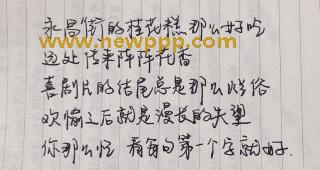 永昌街的桂花糕那么好吃
www.newppp.com
远处传来阵阵花香
喜剧片的结尾总是那么烂俗
欢愉之后就是漫长的失望
你那么忙 看每句第一个字就好.